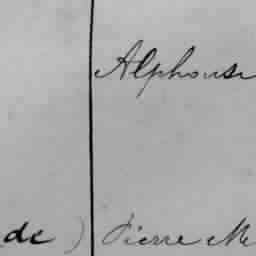 Alphonse
de) Pierre M